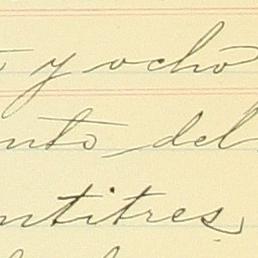 y ocho
nto del
ntitres